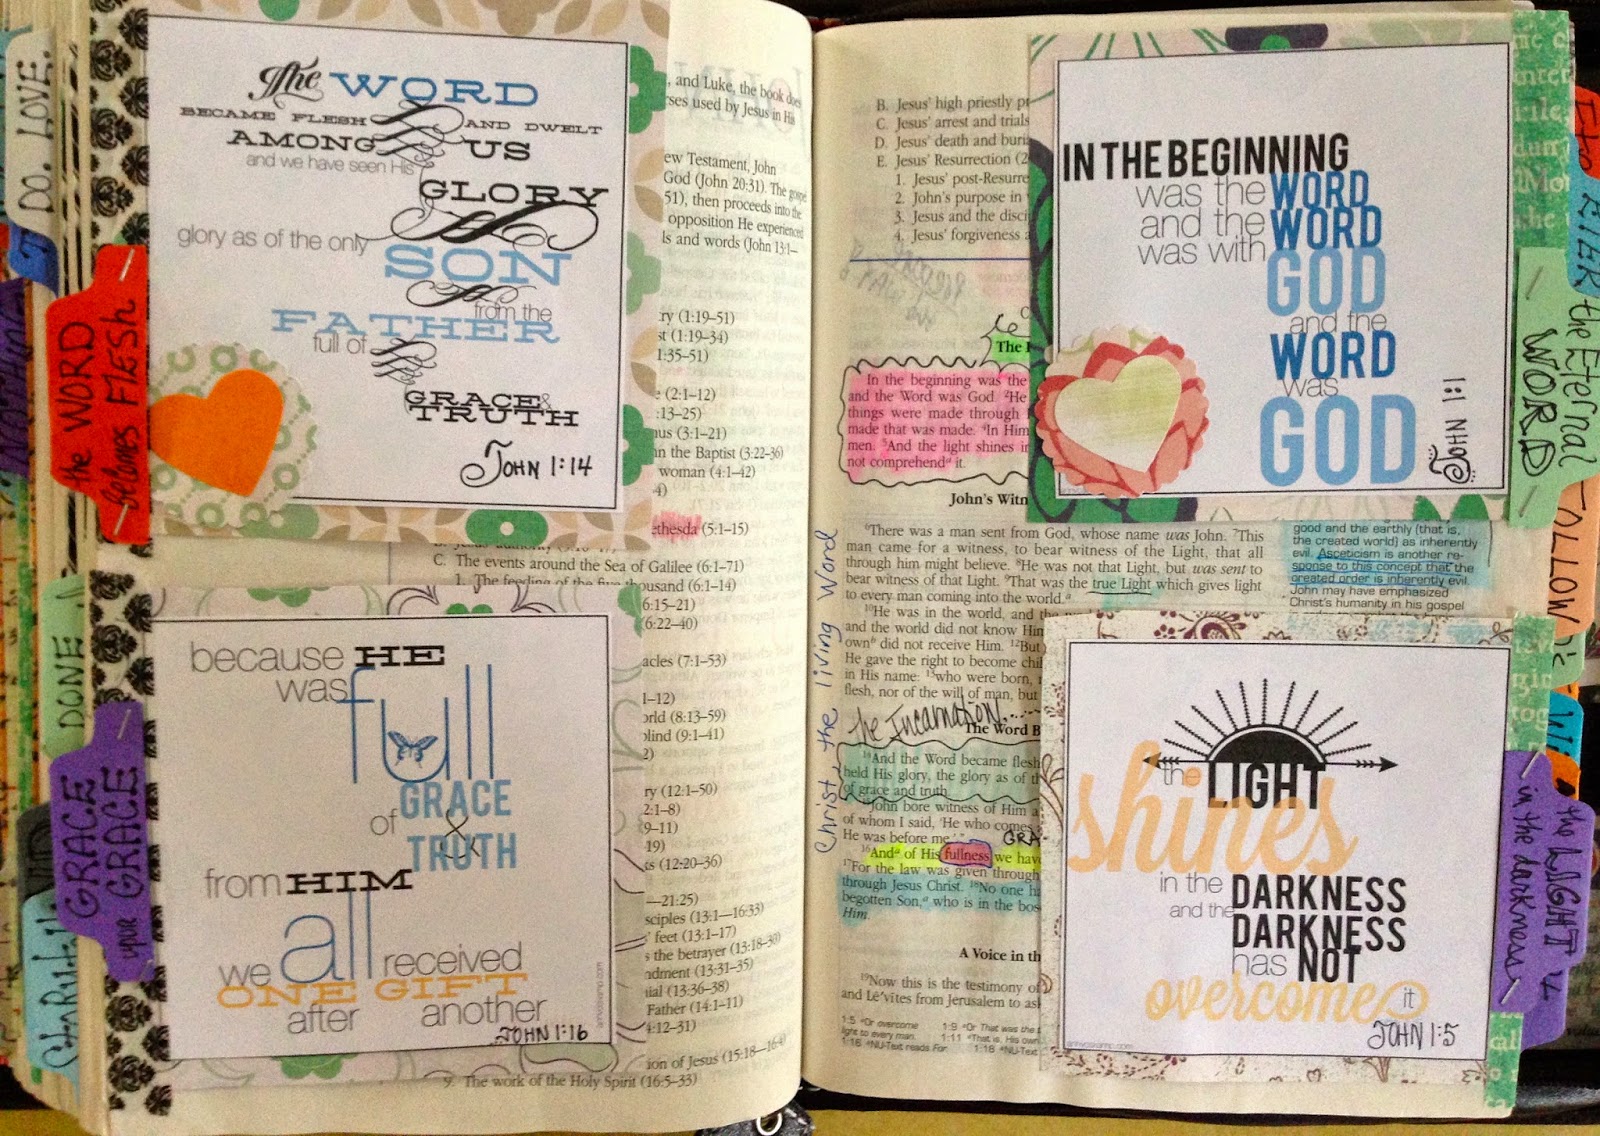 DO. LOVE.
the WORD
Becomes FLESH
DONE
GRACE
upon GRACE
The WORD
BECAME FLESH AND DWELT
AMONG US
and we have seen His
GLORY
glory as of the only
SON
from the
FATHER
full of
GRACE &
TRUTH
JOHN 1:14
because HE
was full
of GRACE
&
TRUTH
from HIM
we all received
ONE GIFT
after another
JOHN 1:16
annvoskamp.com
, and Luke, the book does
rses used by Jesus in His
ew Testament, John
God (John 20:31). The gospel
51), then proceeds into the
opposition He experienced
ls and words (John 13:1–
ry (1:19–51)
st (1:19–34)
1:35–51)
(2:1–12)
:13–25)
us (3:1–21)
n the Baptist (3:22–36)
woman (4:1–42)
ethesda (5:1–15)
C. The events around the Sea of Galilee (6:1–71)
1. The feeding of the five thousand (6:1–14)
6:15–21)
(6:22–40)
acles (7:1–53)
1–12)
orld (8:13–59)
blind (9:1–41)
ry (12:1–50)
2:1–8)
9–11)
–19)
s (12:20–36)
—21:25)
sciples (13:1—16:33)
feet (13:1–17)
s the betrayer (13:18–30)
ndment (13:31–35)
ial (13:36–38)
Father (14:1–11)
4:12–31)
ion of Jesus (15:18—16:4)
9. The work of the Holy Spirit (16:5–33)
B. Jesus' high priestly pr
C. Jesus' arrest and trials
D. Jesus' death and buri
E. Jesus' Resurrection (2
1. Jesus' post-Resurre
2. John's purpose in
3. Jesus and the disci
4. Jesus' forgiveness a
In the beginning was the
and the Word was God. ²He
things were made through
made that was made. ⁴In Him
men. ⁵And the light shines in
not comprehendᵃ it.
John's Witn
⁶There was a man sent from God, whose name was John. ⁷This
man came for a witness, to bear witness of the Light, that all
through him might believe. ⁸He was not that Light, but was sent to
bear witness of that Light. ⁹That was the true Light which gives light
to every man coming into the world.ᵃ
¹⁰He was in the world, and the
and the world did not know Him
ownᵃ did not receive Him. ¹²But
He gave the right to become chil
in His name: ¹³who were born,
flesh, nor of the will of man, but
the Incarnation
The Word B
¹⁴And the Word became flesh
held His glory, the glory as of th
of grace and truth.
John bore witness of Him a
of whom I said, 'He who comes
He was before me.'"
¹⁶Andᵃ of His fullness we have
¹⁷For the law was given through
through Jesus Christ. ¹⁸No one ha
begotten Son,ᵃ who is in the bos
Him.
A Voice in th
¹⁹Now this is the testimony of
and Lē′vītes from Jerusalem to as
1:5 ᵃOr overcome 1:9 ᵃOr That was the
light to every man. 1:11 ᵃThat is, His own
1:16 ᵃNU-Text reads For. 1:18 ᵃNU-Text
Christ the living Word
good and the earthly (that is,
the created world) as inherently
evil. Asceticism is another re-
sponse to this concept that the
created order is inherently evil.
John may have emphasized
Christ's humanity in his gospel
IN THE BEGINNING
was the WORD
and the WORD
was with GOD
and the
WORD
was
GOD
JOHN 1:1
the LIGHT
shines
in the DARKNESS
and the DARKNESS
has NOT
overcome it
JOHN 1:5
annvoskamp.com
the Eternal
WORD
FOLLOW
the LIGHT
in the darkness